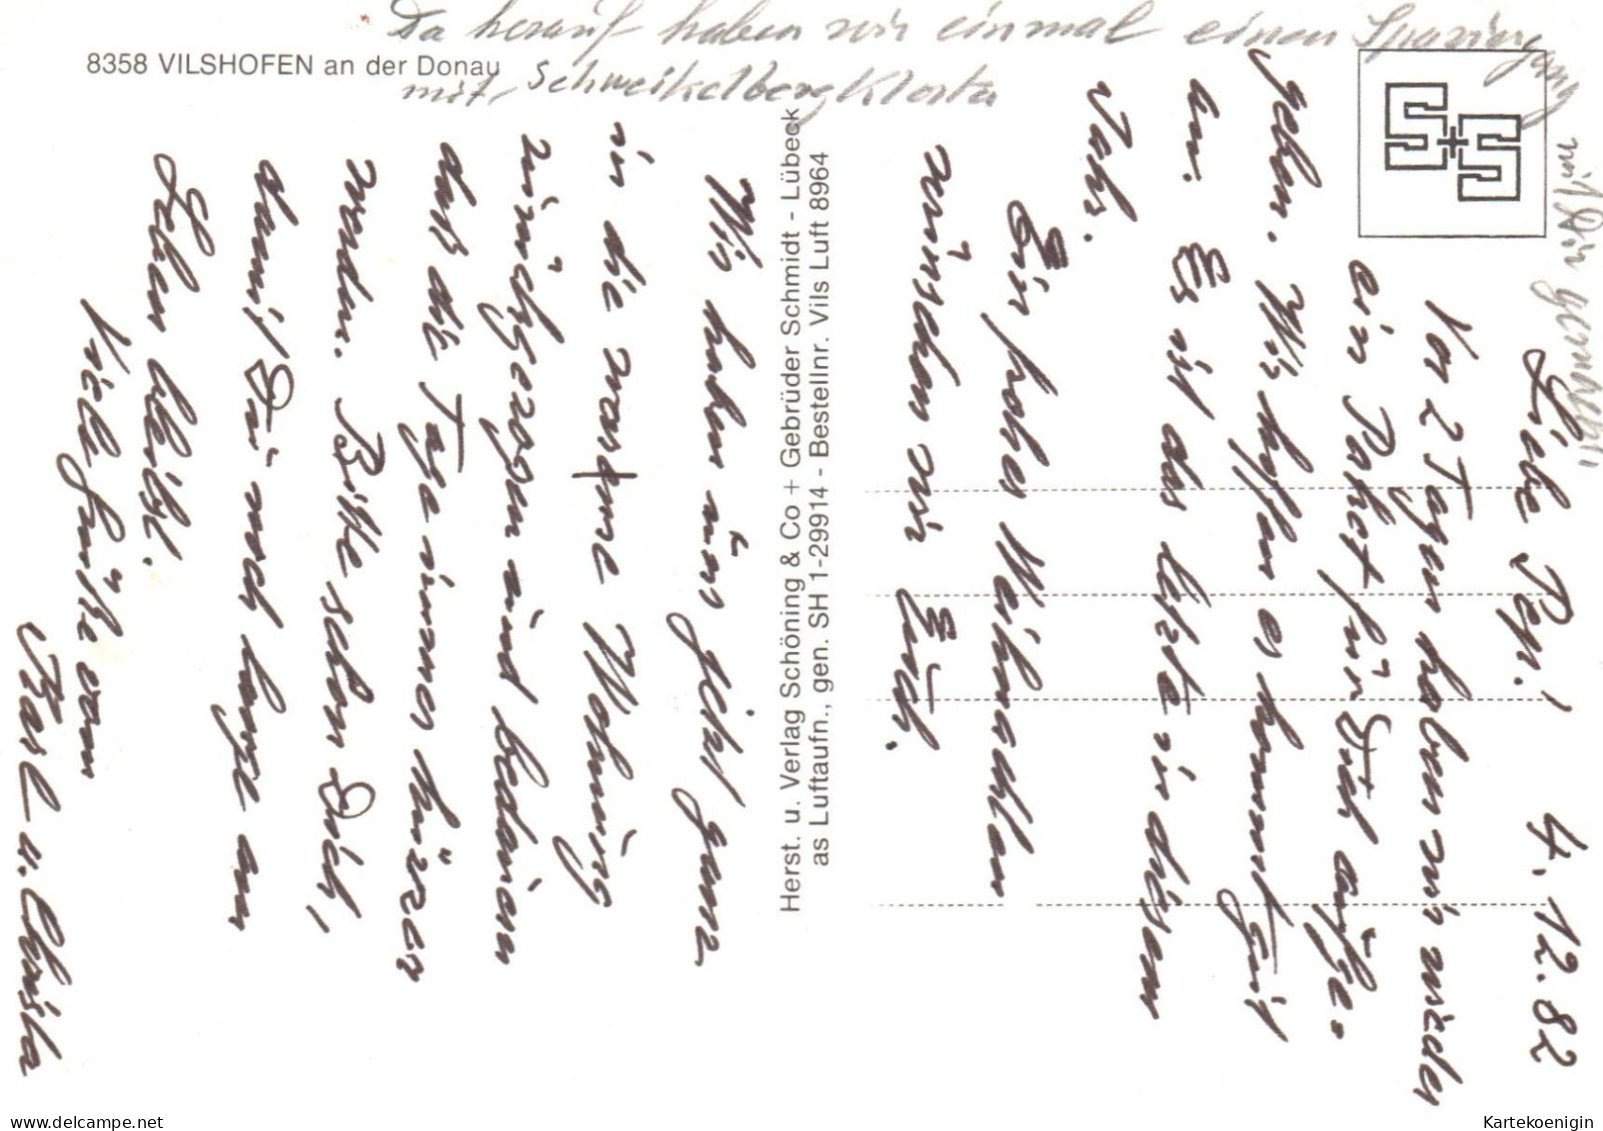 Da herauf haben wir einmal einen Spaziergang
8358 VILSHOFEN an der Donau
mit Schweikelbergkloster
mit Dir gemacht!
4.12.82
Liebe Pepi!
Vor 2 Tagen haben wir wieder
ein Paket für Dich aufge-
geben. Wir hoffen es kommt gut
an. Es ist das letzte in diesem
Jahr.
Ein frohes Weihnachten
wünschen wir Euch.
Herst. u. Verlag Schöning & Co + Gebrüder Schmidt - Lübeck
as Luftaufn., gen. SH 1-29914 - Bestellnr. Vils Luft 8964
Wir haben uns jetzt ganz
in die warme Wohnung
zurückgezogen und bedauern
daß die Tage immer kürzer
werden. Bitte schon Dich,
damit Du noch lange am
Leben bleibst.
Viele Grüße von
Karl u. Christa
www.delcampe.net
Kartekoenigin